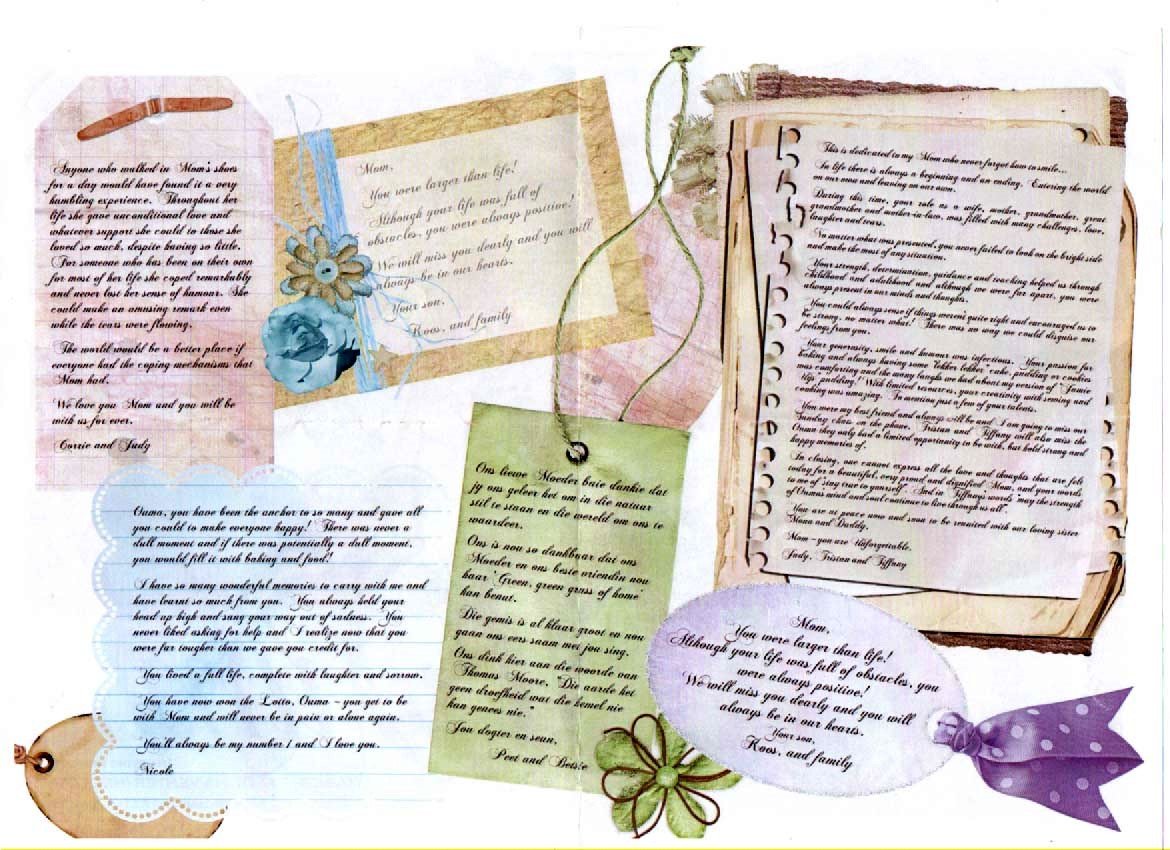 Anyone who walked in Mom's shoes
for a day would have found it a very
humbling experience. Throughout her
life she gave unconditional love and
whatever support she could to those she
loved so much, despite having so little.
For someone who has been on their own
for most of her life she coped remarkably
and never lost her sense of humour. She
could make an amusing remark even
while the tears were flowing.
The world would be a better place if
everyone had the coping mechanisms that
Mom had.
We love you Mom and you will be
with us for ever.
Corrie and Judy
Mom,
You were larger than life!
Although your life was full of
obstacles, you were always positive!
We will miss you dearly and you will
always be in our hearts.
Your son,
Koos, and family
This is dedicated to my Mom who never forgot how to smile...
In life there is always a beginning and an ending. Entering the world
on our own and leaving on our own.
During this time, your role as a wife, mother, grandmother, great
grandmother and mother-in-law, was filled with many challenges, love,
laughter and tears.
No matter what was presented, you never failed to look on the bright side
and make the most of any situation.
Your strength, determination, guidance and coaching helped us through
childhood and adulthood and although we were far apart, you were
always present in our minds and thoughts.
You could always sense if things weren't quite right and encouraged us to
be strong, no matter what! There was no way we could disguise our
feelings from you.
Your generosity, smile and humour was infectious. Your passion for
baking and always having some "lekker lekker" cake, pudding or cookies
was comforting and the many laughs we had about my version of "Jamie
slip pudding." With limited resources, your creativity with sewing and
cooking was amazing. To mention just a few of your talents.
You were my best friend and always will be and I am going to miss our
Sunday chats on the phone. Tristan and Tiffany will also miss the
Ouma they only had a limited opportunity to be with, but hold strong and
happy memories of.
In closing, one cannot express all the love and thoughts that are felt
today for a beautiful, very proud and dignified Mom, and your words
to me of "sing true to yourself". And in Tiffany's words "may the strength
of Oumas mind and soul continue to live through us all".
You are at peace now and soon to be reunited with our loving sister
Mona and Daddy.
Mom - you are Unforgettable.
Judy, Tristan and Tiffany
Ouma, you have been the anchor to so many and gave all
you could to make everyone happy! There was never a
dull moment and if there was potentially a dull moment,
you would fill it with baking and food!
I have so many wonderful memories to carry with me and
have learnt so much from you. You always held your
head up high and sang your way out of sadness. You
never liked asking for help and I realize now that you
were far tougher than we gave you credit for.
You lived a full life, complete with laughter and sorrow.
You have now won the Lotto, Ouma - you get to be
with Mom and will never be in pain or alone again.
You'll always be my number 1 and I love you.
Nicole
Ons liewe Moeder baie dankie dat
jy ons geleer het om in die natuur
stil te staan en die wereld om ons te
waardeer.
Ons is nou so dankbaar dat ons
Moeder en ons beste vriendin nou
haar 'Green, green grass of home'
kan benut.
Die gemis is al klaar groot en nou
gaan ons eers saam met jou sing.
Ons dink hier aan die woorde van
Thomas Moore, "Die aarde het
geen droefheid wat die hemel nie
kan genees nie."
Jou dogter en seun,
Peet and Betsie
Mom,
You were larger than life!
Although your life was full of obstacles, you
were always positive!
We will miss you dearly and you will
always be in our hearts.
Your son,
Koos, and family